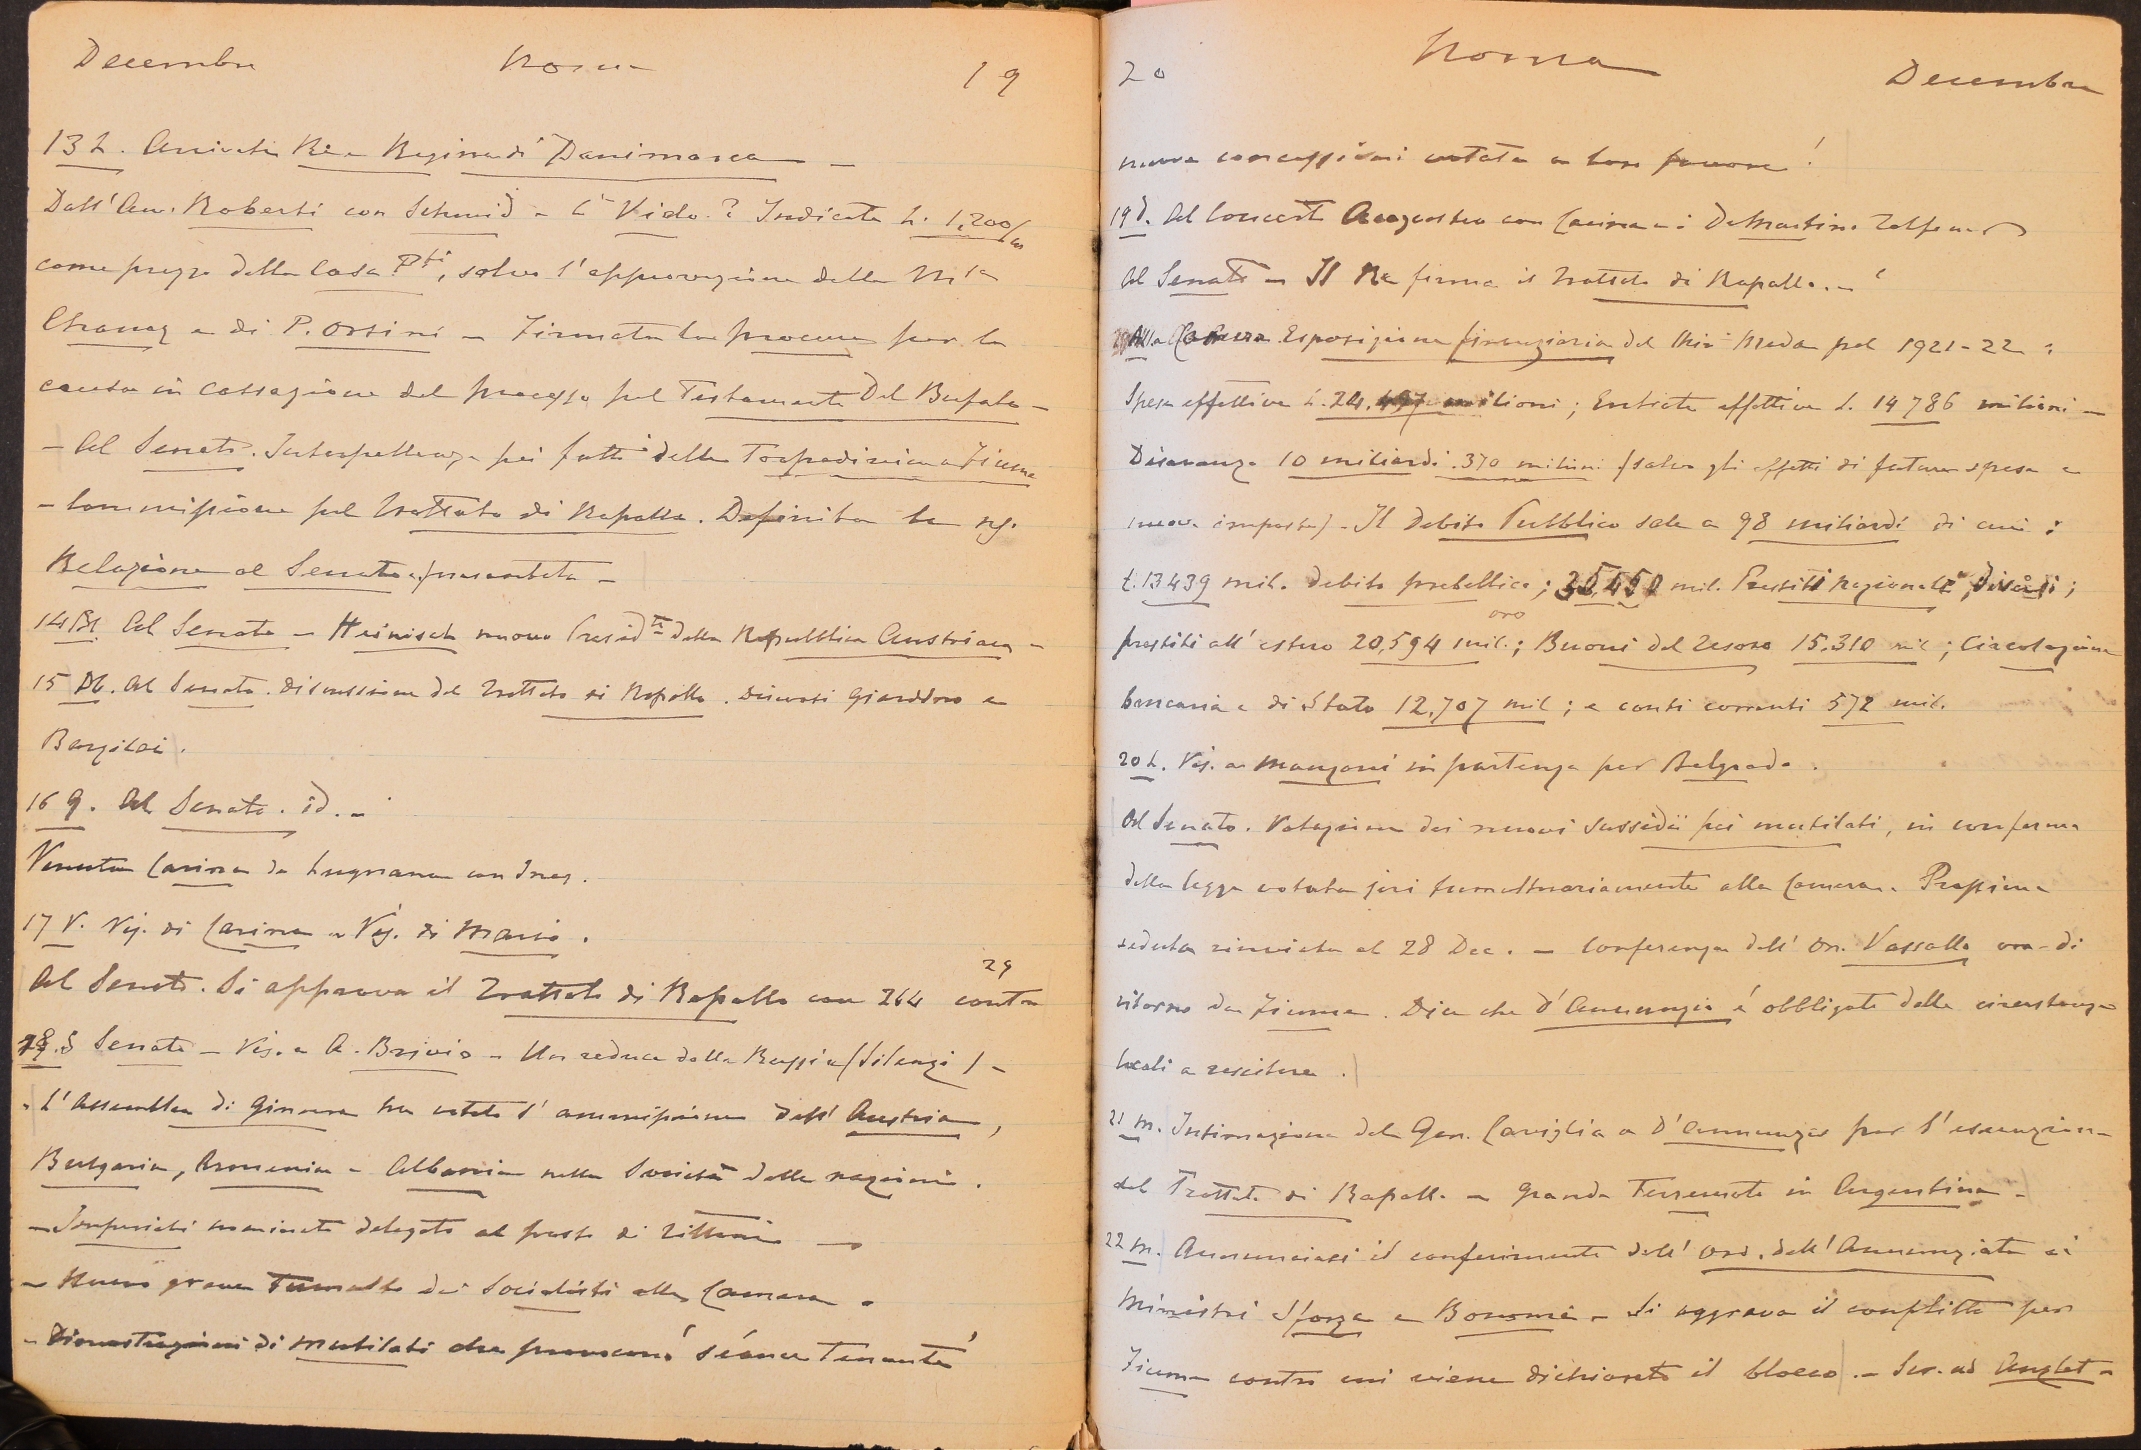 Decembre Roma 19
13 L. Arrivati Re e Regina di Danimarca —
Dall'Avv. Roberti con Schmid - Vido. ? Indicata L. 1,200/m
come prezzo della Casa Pti, salvo l'approvazione della M.sa
Chanaz e di P. Orsini — Firmata la procura per la
causa in Cassazione del processo pel Testamento Del Bufalo —
— Al Senato. Interpellanza pei fatti della Torpediniera a Fiume
— Commissione pel Trattato di Rapallo. Definita la
Relazione al Senato e presentata —
14 M. Al Senato — Heinisch nuovo Presid.te della Repubblica Austriaca —
15 M. Al Senato. Discussione del Trattato di Rapallo. Discorsi Giardino e
Barzilai.
16 G. Al Senato. id. —
Venuta Carina da Lugnano con Ines.
17 V. Vis. di Carina e Vis. di Mario.
Al Senato. Si approva il Trattato di Rapallo con 264 contro 29
18. S Senato — Vis. a A. Brivio — Un reduce dalla Russia (Silenzi) —
- L'Assemblea di Ginevra ha votato l'ammissione dell'Austria,
Bulgaria, Armenia e Albania nella Società delle nazioni.
— Imperiali nominato delegato al posto di Tittoni —
— Nuovo grave Tumulto dei Socialisti alla Camera —
— Dimostrazioni di mutilati che provocano séance tenante
20 Roma Decembre
nuove concessioni votate a loro favore!
19 D. Al Concerto Augusteo con Carina e i DeMartino
Al Senato — Il Re firma il Trattato di Rapallo. —
Alla Camera Esposizione finanziaria del Min Meda pel 1921-22:
Spese effettive L. 24. milioni; Entrate effettive L. 14 786 milioni —
Disavanzo 10 miliardi 370 milioni (salvo gli effetti di future spese e
nuove imposte) — Il Debito Pubblico sale a 98 miliardi di cui:
L. 13439 mil. debito prebellico; mil. Prestiti nazionali diversi;
prestiti all'estero 20,594 mil. oro; Buoni del Tesoro 15.310 mil; Circolazione
bancaria e di Stato 12,707 mil; e conti correnti 572 mil.
20 L. Vis. a Manzoni in partenza per Belgrado.
Al Senato. Votazione dei nuovi sussidii pei mutilati, in conferma
della legge votata jeri tumultuariamente alla Camera. Prossima
seduta rinviata al 28 Dec. — Conferenza dell'On. Vassallo ora di
ritorno da Fiume. Dice che d'Annunzio è obbligato dalle circostanze
locali a resistere.
21 M. Intimazione del Gen. Caviglia a D'Annunzio per l'esecuzione
del Trattato di Rapallo — Grande Terremoto in Argentina —
22 M. Annunciasi il conferimento dell'Ord. dell'Annunziata ai
Ministri Sforza e Bonomi — Si aggrava il conflitto per
Fiume contro cui viene dichiarato il blocco. — Scr. ad Anglet-